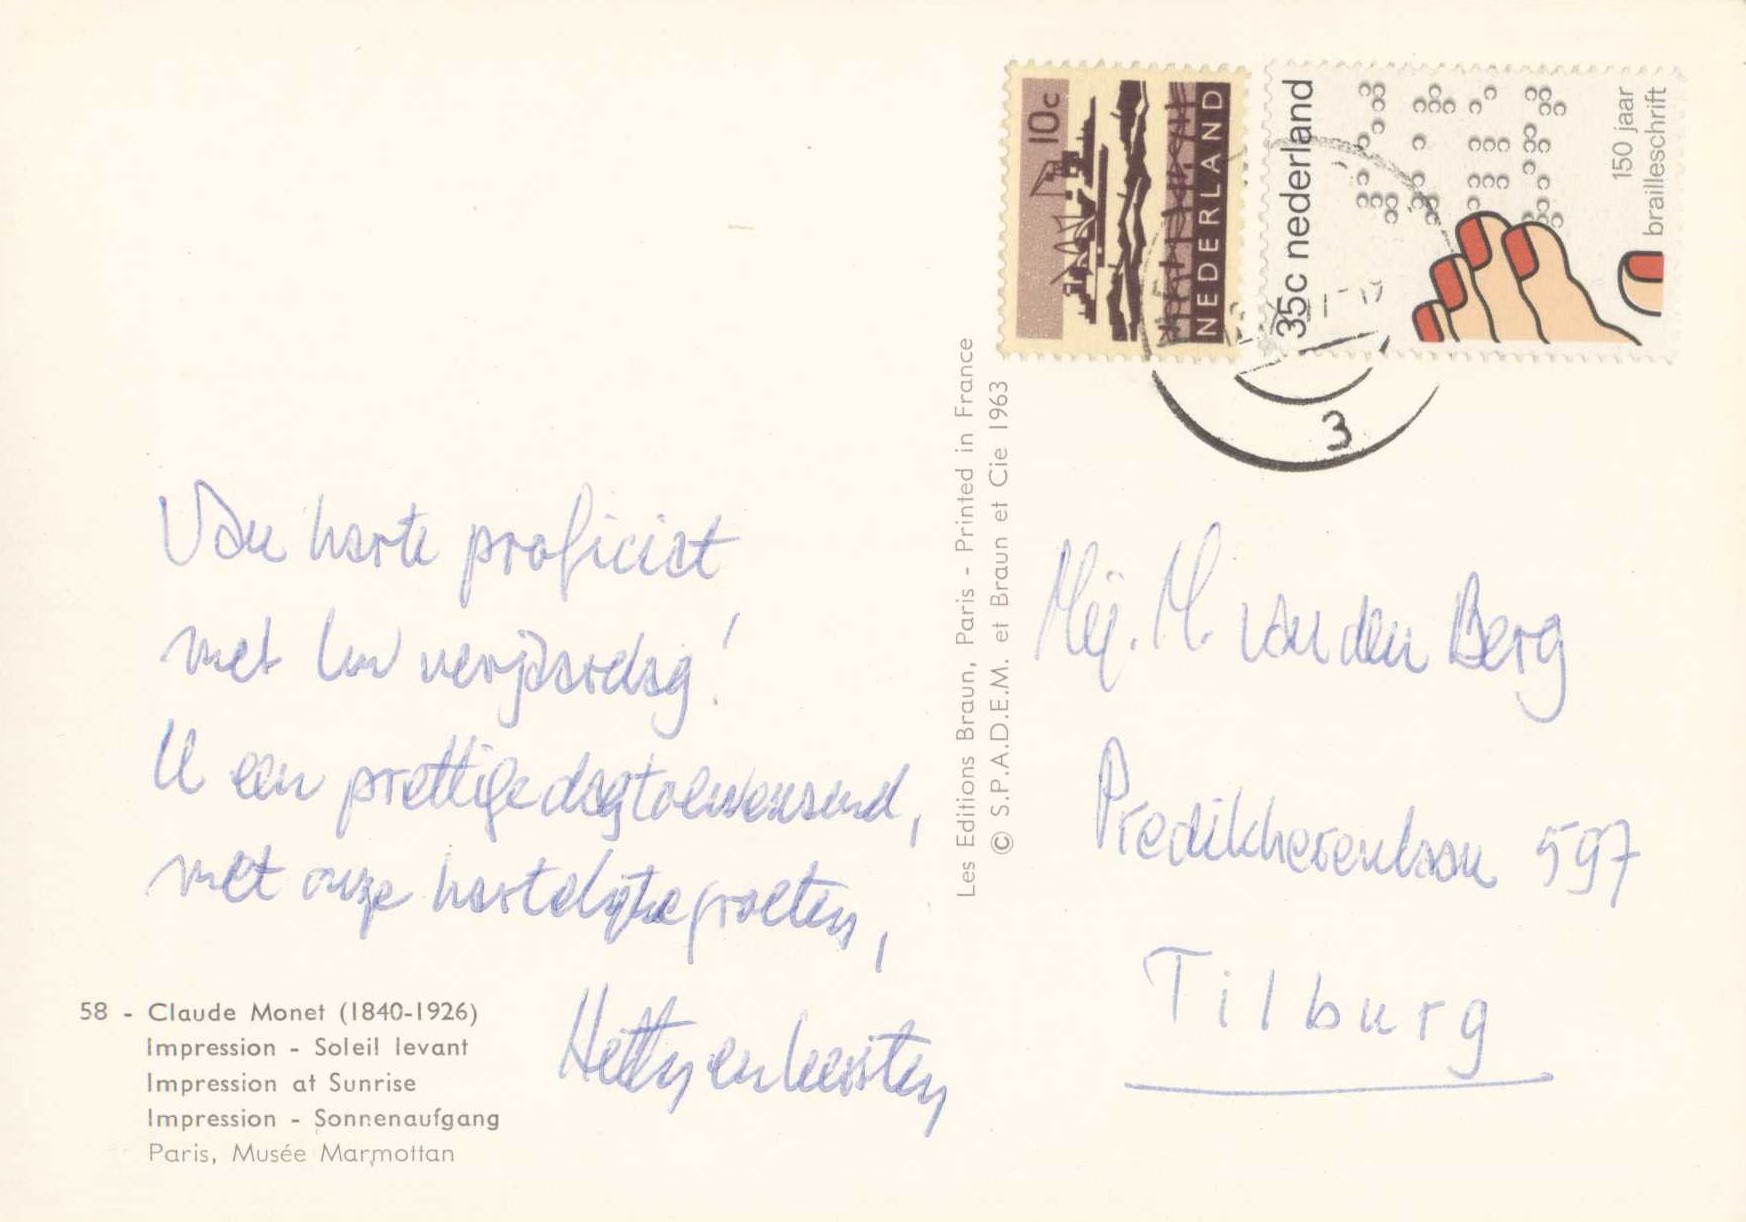 Van harte proficiat
met Uw verjaardag!
U een prettige dag toewensend,
met onze hartelijke groeten,
Hetty en
58 - Claude Monet (1840-1926)
Impression - Soleil levant
Impression at Sunrise
Impression - Sonnenaufgang
Paris, Musée Marmottan
Les Editions Braun, Paris - Printed in France
© S.P.A.D.E.M. et Braun et Cie 1963
10c
NEDERLAND
35c nederland
150 jaar
brailleschrift
3
Mej. M. van den Berg
Predikherenlaan 597
Tilburg